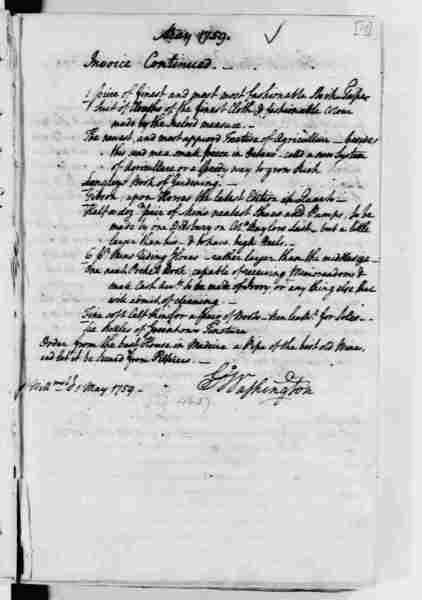 May 1759.
Invoice Continued.
1 piece of finest and most fashionable Stock Tape
1 Suit of Cloaths of the finest Cloth & fashionable colour
made by the Inclos'd measure.
The newest, and most approvd Treatise of Agriculture — besides
this send me a small piece in Octavo — calld a new System
of Agriculture or a Speedy way to grow Rich
Langley's Book of Gardening.
Gibson, upon Horses the latest Edition in Quarto
Half a doz pair of Men's neatest Shoes and Pumps, to be
made by one Didsbury on Colo Baylors Last, but a little
larger than his — & to have high Heels.
6 pr Mens riding Gloves — rather larger than the middle size
One neat Pocket Book, capable of receiving Memorandoms &
small Cash Accts to be made of Ivory or any thing else that
will admit of cleaning.
Fine soft Calf Skin for a pair of Boots — Ben leathr for Soles
Six Bottles of Greenhows Tincture
Order from the best House in Madeira a Pipe of the best old Wine,
and let it be Secured from Pilferers.
Go Washington
Will.msbg 1 May 1759